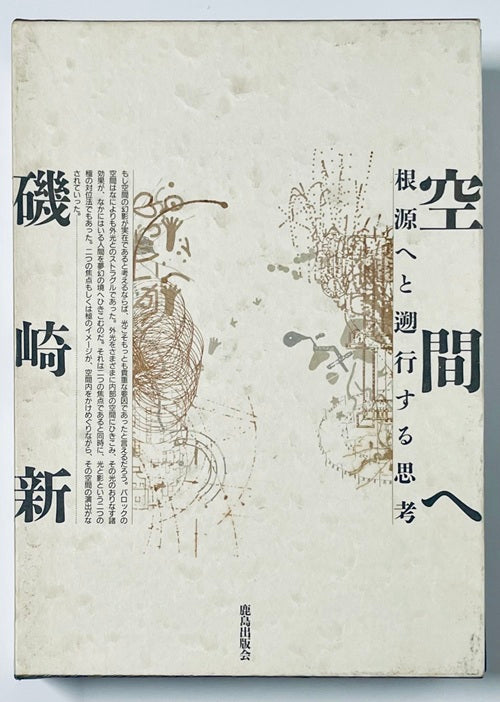 空間へ
根源へと遡行する思考
もし空間の幻影が実在であると考えるならば、光こそもっとも貴重な要因であったと言えるだろう。バロックの
空間はなによりも外光とのストラグルであった。外光をさまざまに内部の空間にひきこみ、その光のおりなす諸
効果が、なかにはいる人間を夢幻の境へひきこむのだ。それは二つの焦点であると同時に、光と影という二つの
極の対位法でもあった。二つの焦点もしくは極のイメージが、空間内をかけめぐりながら、その空間の演出がな
されていった。
磯崎新
鹿島出版会